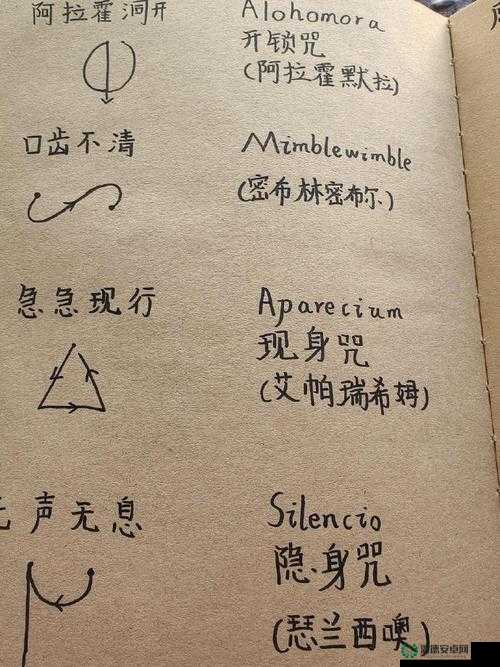 阿拉霍洞开
Alohomora
开锁咒
(阿拉霍默拉)
口齿不清
Mimblewimble
(密布林密布尔)
急急现行
Aparecium
现身咒
(艾帕瑞希姆)
声无息
Silencio
隐身咒
(瑟兰西噢)